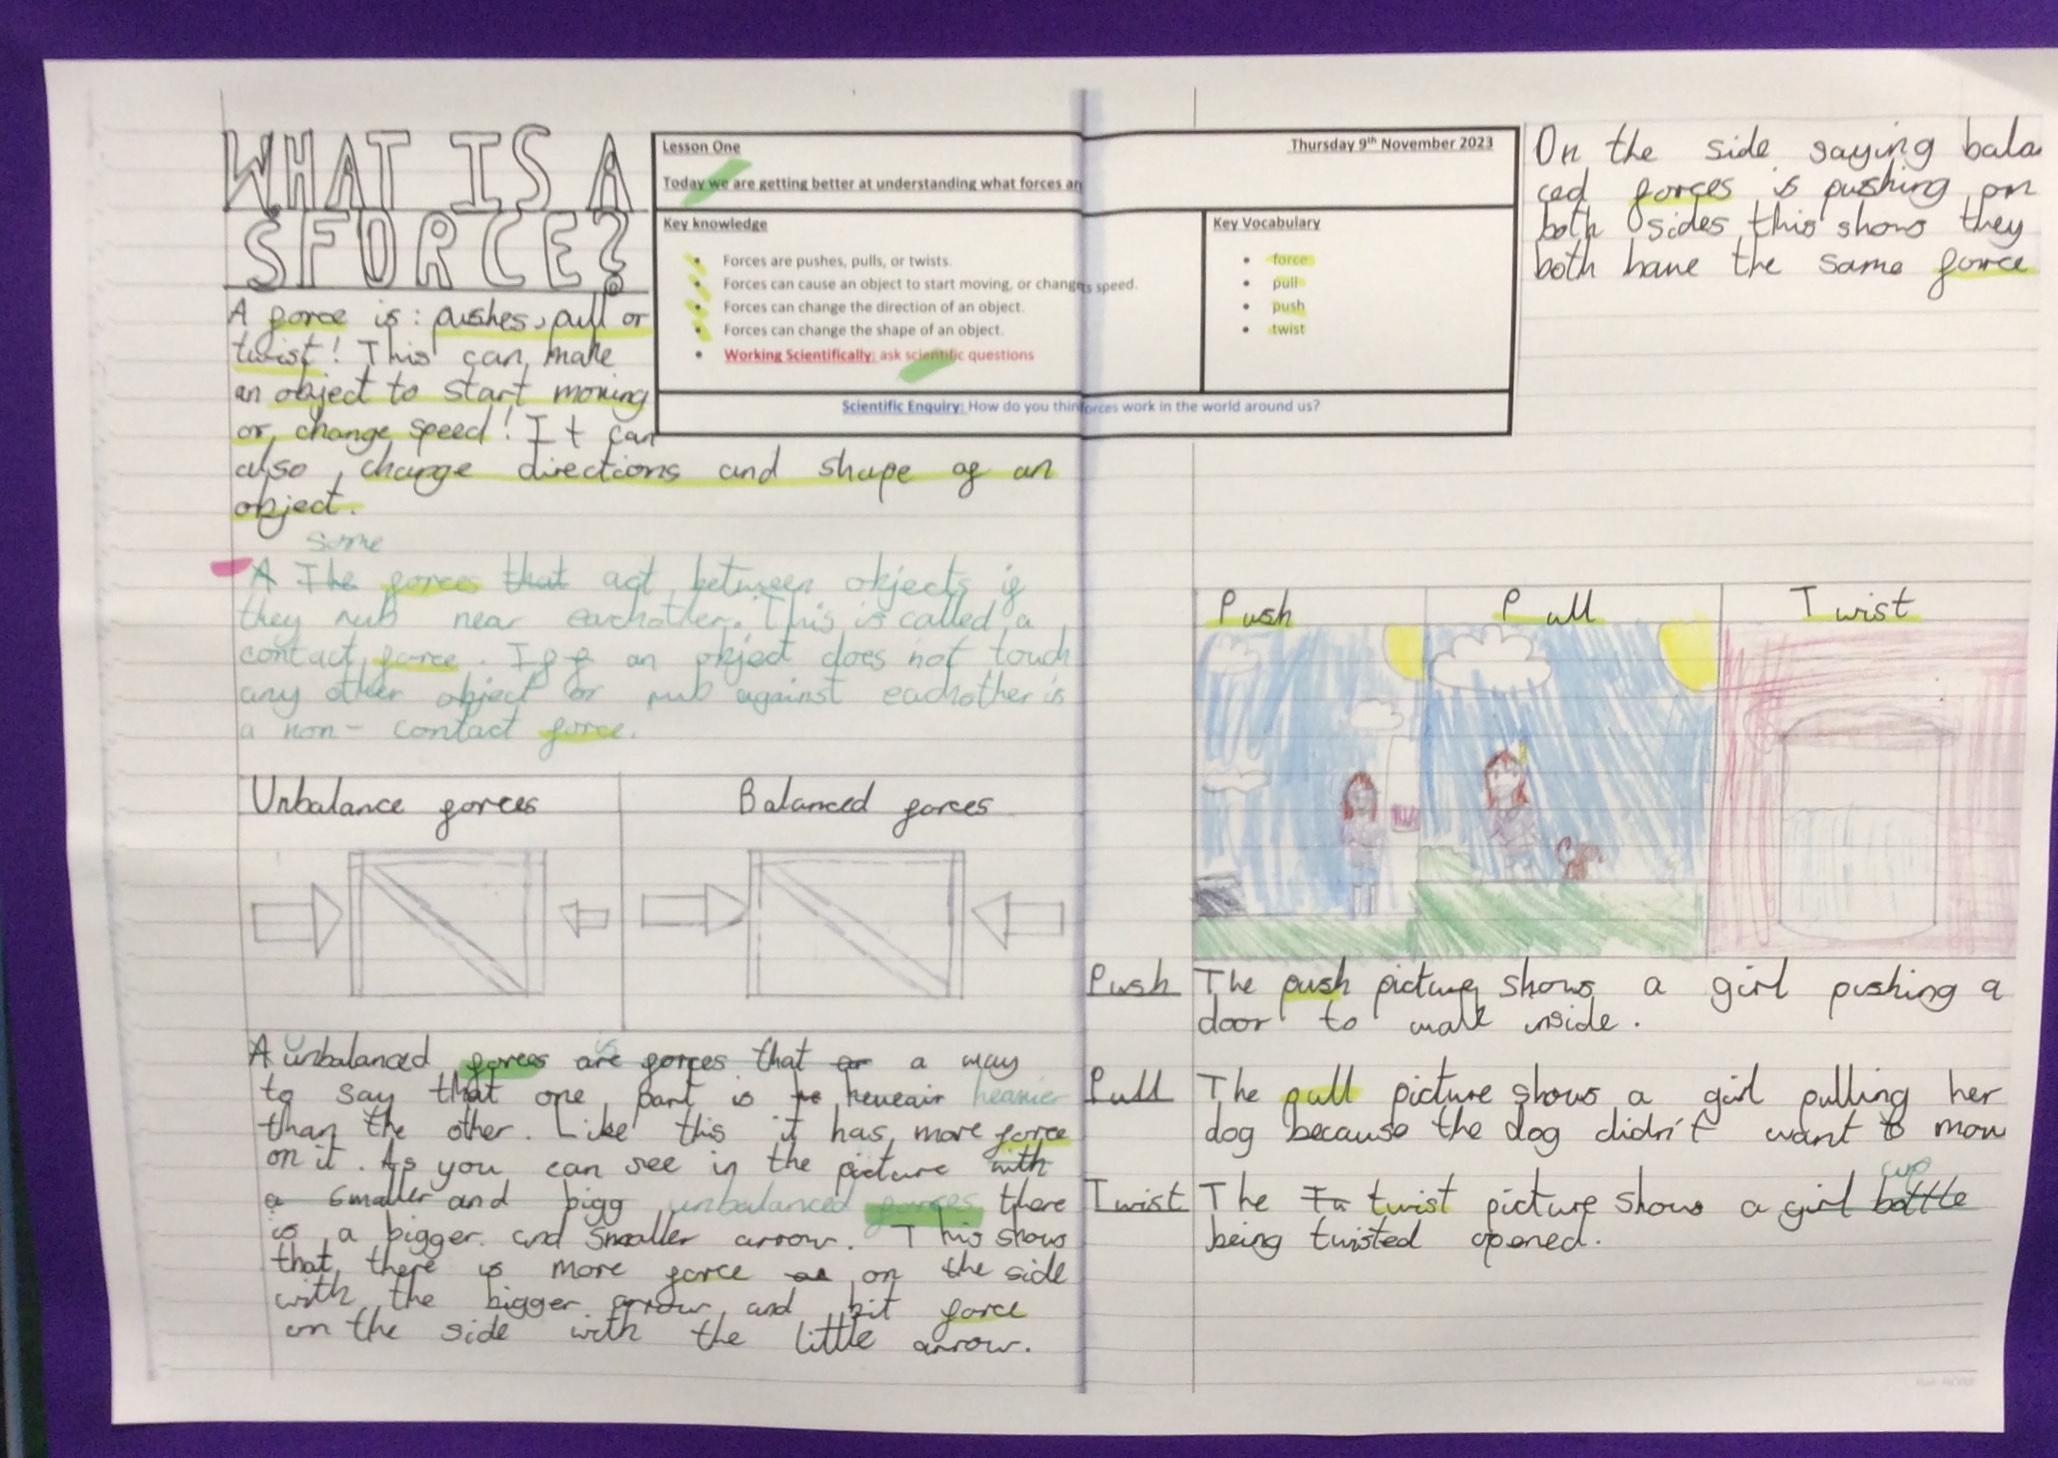 WHAT IS A
SFORCE?
Lesson One
Thursday 9th November 2023
Today we are getting better at understanding what forces an
Key knowledge
• Forces are pushes, pulls, or twists.
• Forces can cause an object to start moving, or changes speed.
• Forces can change the direction of an object.
• Forces can change the shape of an object.
• Working Scientifically: ask scientific questions
Key Vocabulary
• force
• pull
• push
• twist
Scientific Enquiry: How do you thinforces work in the world around us?
A force is: pushes, pull or
twist! This can make
an object to start moving
or, change speed! It can
also, change directions and shape of an
object.
some
A The forces that act between objects if
they rub near eachother. This is called a
contact force. If an object does not touch
any other object or rub against eachother is
a non- contact force.
Unbalance forces
Balanced forces
A unbalanced forces are is forces that or a way
to say that one part is heveair heavier
than the other. Like this it has more force
on it. As you can see in the picture with
a smaller and bigg unbalanced forces there
is a bigger and smaller arrow. This shows
that there is more force on the side
with the bigger arrow and bit force
on the side with the little arrow.
On the side saying bala
ced forces is pushing on
both sides this shows they
both have the same force
Push Pull Twist
Push The push picture shows a girl pushing a
door to walk inside.
Pull The pull picture shows a girl pulling her
dog because the dog didn't want to mov
cup
Twist The Tu twist picture shows a girl bottle
being twisted opened.